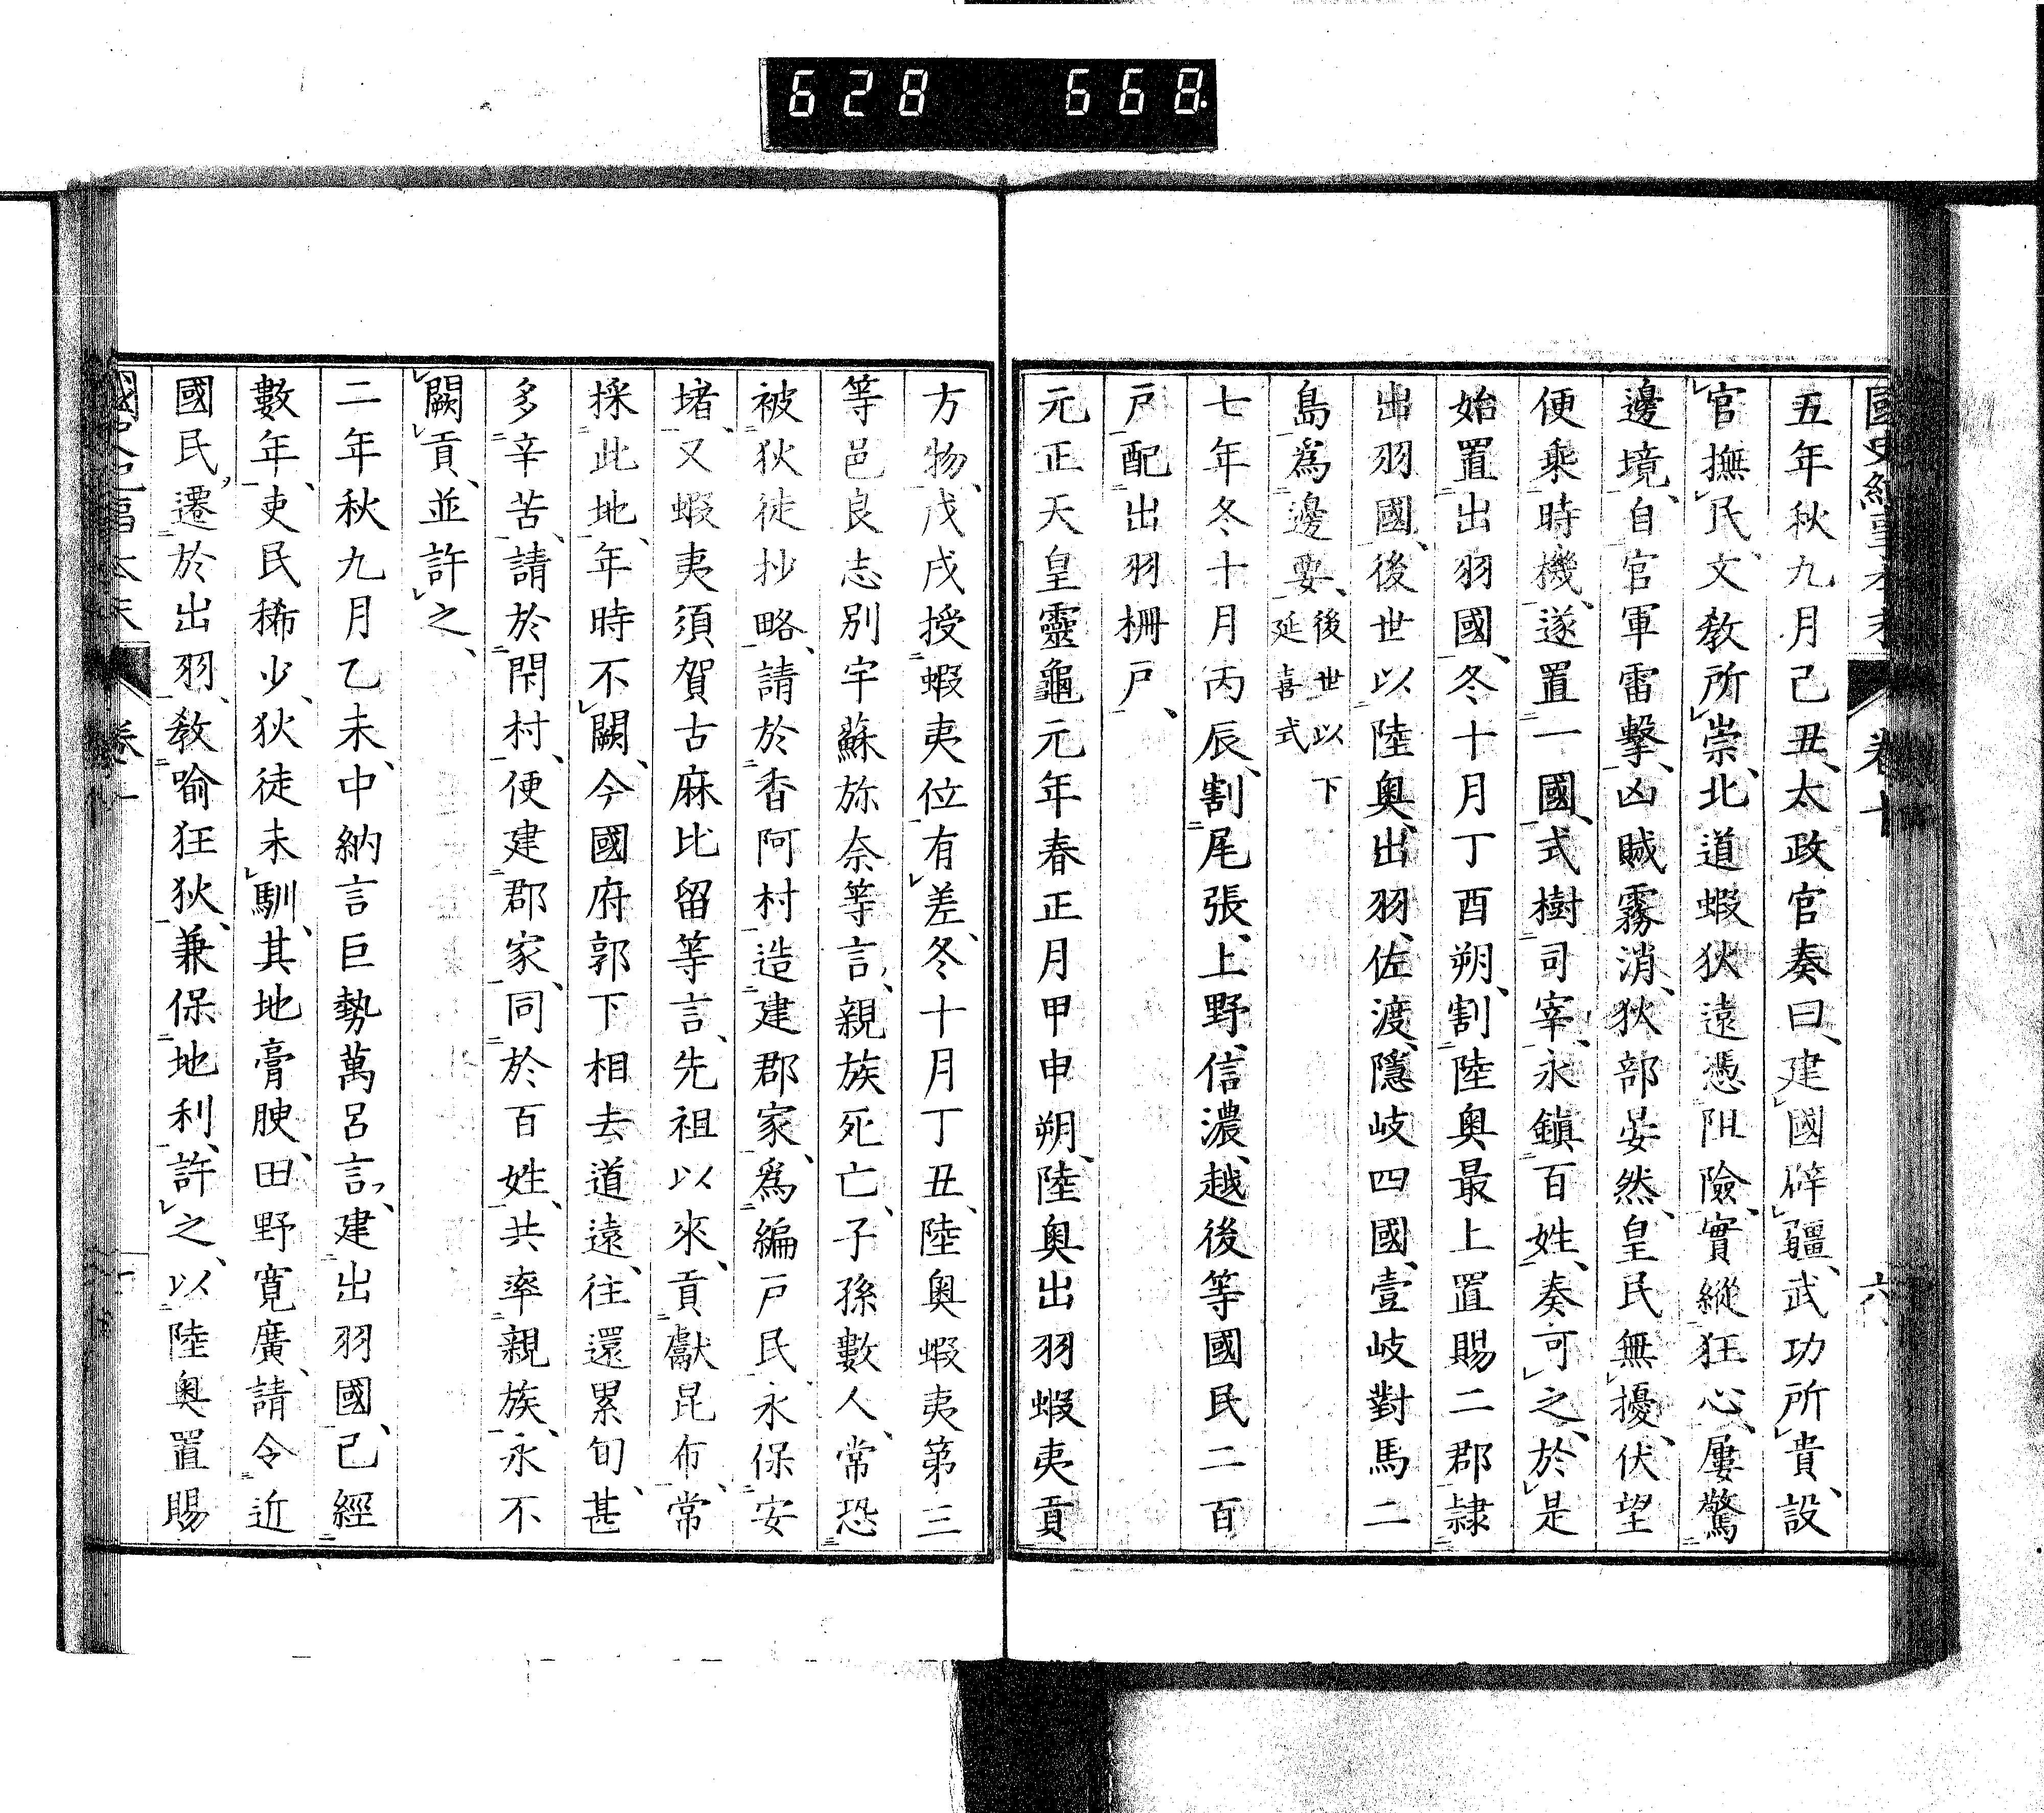 628 668
五年秋九月己丑、太政官奏曰、建國辟疆、武功所貴、設
官撫民、文敎所崇、北道蝦狄遠憑阻險、實縱狂心、屢驚
邊境、自官軍雷擊、凶賊霧消、狄部晏然、皇民無擾、伏望
便乘時機、遂置一國、式樹司宰、永鎭百姓、奏可之、於是
始置出羽國、冬十月丁酉朔、割陸奧最上置賜二郡隷
出羽國、後世以陸奧、出羽、佐渡、隱岐四國、壹岐對馬二
島爲邊要、後世以下延喜式
七年冬十月丙辰、割尾張、上野、信濃、越後等國民二百
戸配出羽柵戸、
元正天皇靈龜元年春正月甲申朔、陸奧出羽蝦夷貢
方物、戊戌授蝦夷位有差、冬十月丁丑、陸奧蝦夷第三
等邑良志別宇蘇弥奈等言、親族死亡、子孫數人、常恐
被狄徒抄略、請於香阿村造建郡家、爲編戸民、永保安
堵、又蝦夷須賀古麻比留等言、先祖以來、貢獻昆布、常
採此地、年時不闕、今國府郭下相去道遠、往還累旬、甚
多辛苦、請於閇村、便建郡家、同於百姓、共率親族、永不
闕貢、並許之、
二年秋九月乙未、中納言巨勢萬呂言、建出羽國、已經
數年、吏民稀少、狄徒未馴、其地膏腴、田野寬廣、請令近
國民、遷於出羽、敎喻狂狄、兼保地利、許之、以陸奧置賜